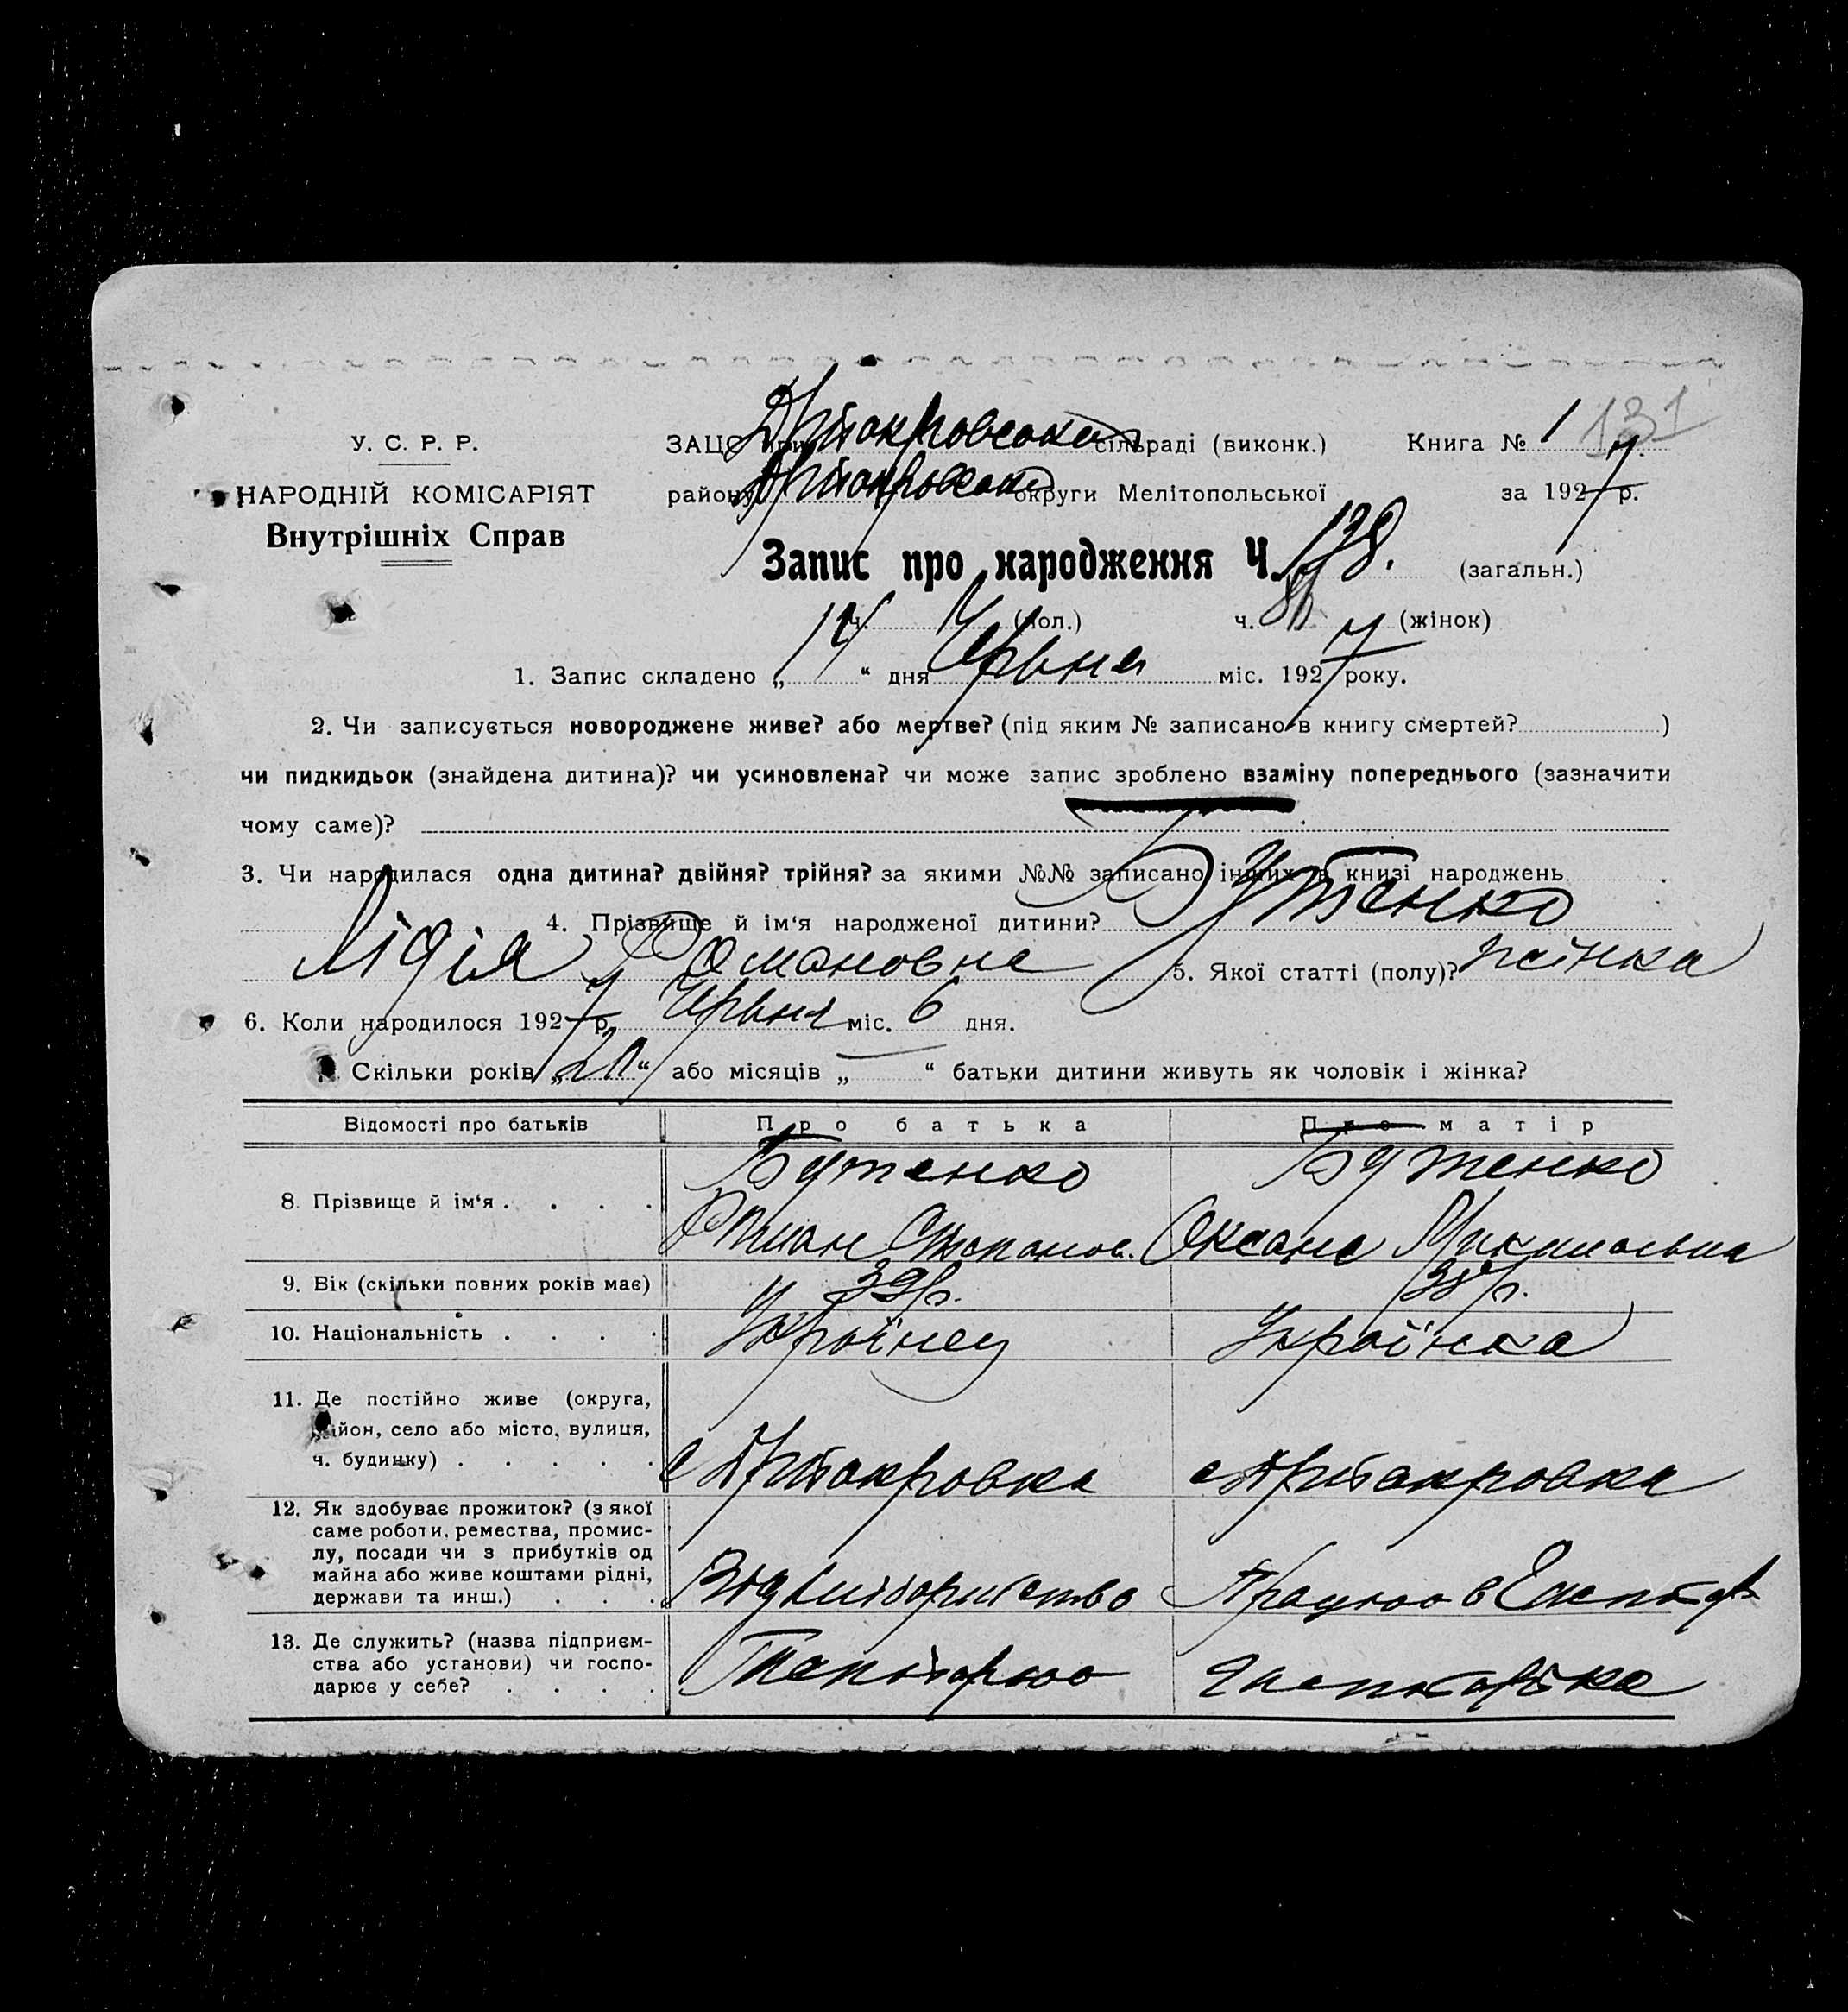 131
У. С. Р. Р.
ЗАЦС при сільраді (виконк.) Книга № 1
НАРОДНІЙ КОМІСАРІЯТ
району округи Мелітопольської за 1927 р.
Внутрішніх Справ
Запис про народження Ч. 138. (загальн.)
ч. (чол.) ч. (жінок)
1. Запис складено „14“ дня Червня міс. 1927 року.
2. Чи записується новороджене живе? або мертве? (під яким № записано в книгу смертей? )
чи пидкидьок (знайдена дитина)? чи усиновлена? чи може запис зроблено взаміну попереднього (зазначити
чому саме)?
3. Чи народилася одна дитина? двійня? трійня? за якими №№ записано інших в книзі народжень
4. Прізвище й ім‘я народженої дитини? Бутенко
Лідія Романовна 5. Якої статті (полу)?
6. Коли народилося 1927 р. Червня міс. 6 дня.
Скільки років „20“ або місяців „—“ батьки дитини живуть як чоловік і жінка?
Відомості про батьків Про батька Про матір
8. Прізвище й ім‘я . . . . Бутенко Бутенко
Роман Степанов. Оксана
9. Вік (скільки повних років має) 39 р. 38 р.
10. Національність . . . . Українец Українка
11. Де постійно живе (округа,
район, село або місто, вулиця,
ч. будинку) . . . . .
12. Як здобуває прожиток? (з якої
саме роботи, ремества, промис-
лу, посади чи з прибутків од
майна або живе коштами рідні,
держави та инш.) . . .
13. Де служить? (назва підприєм-
ства або установи) чи госпо-
дарює у себе? . . . .